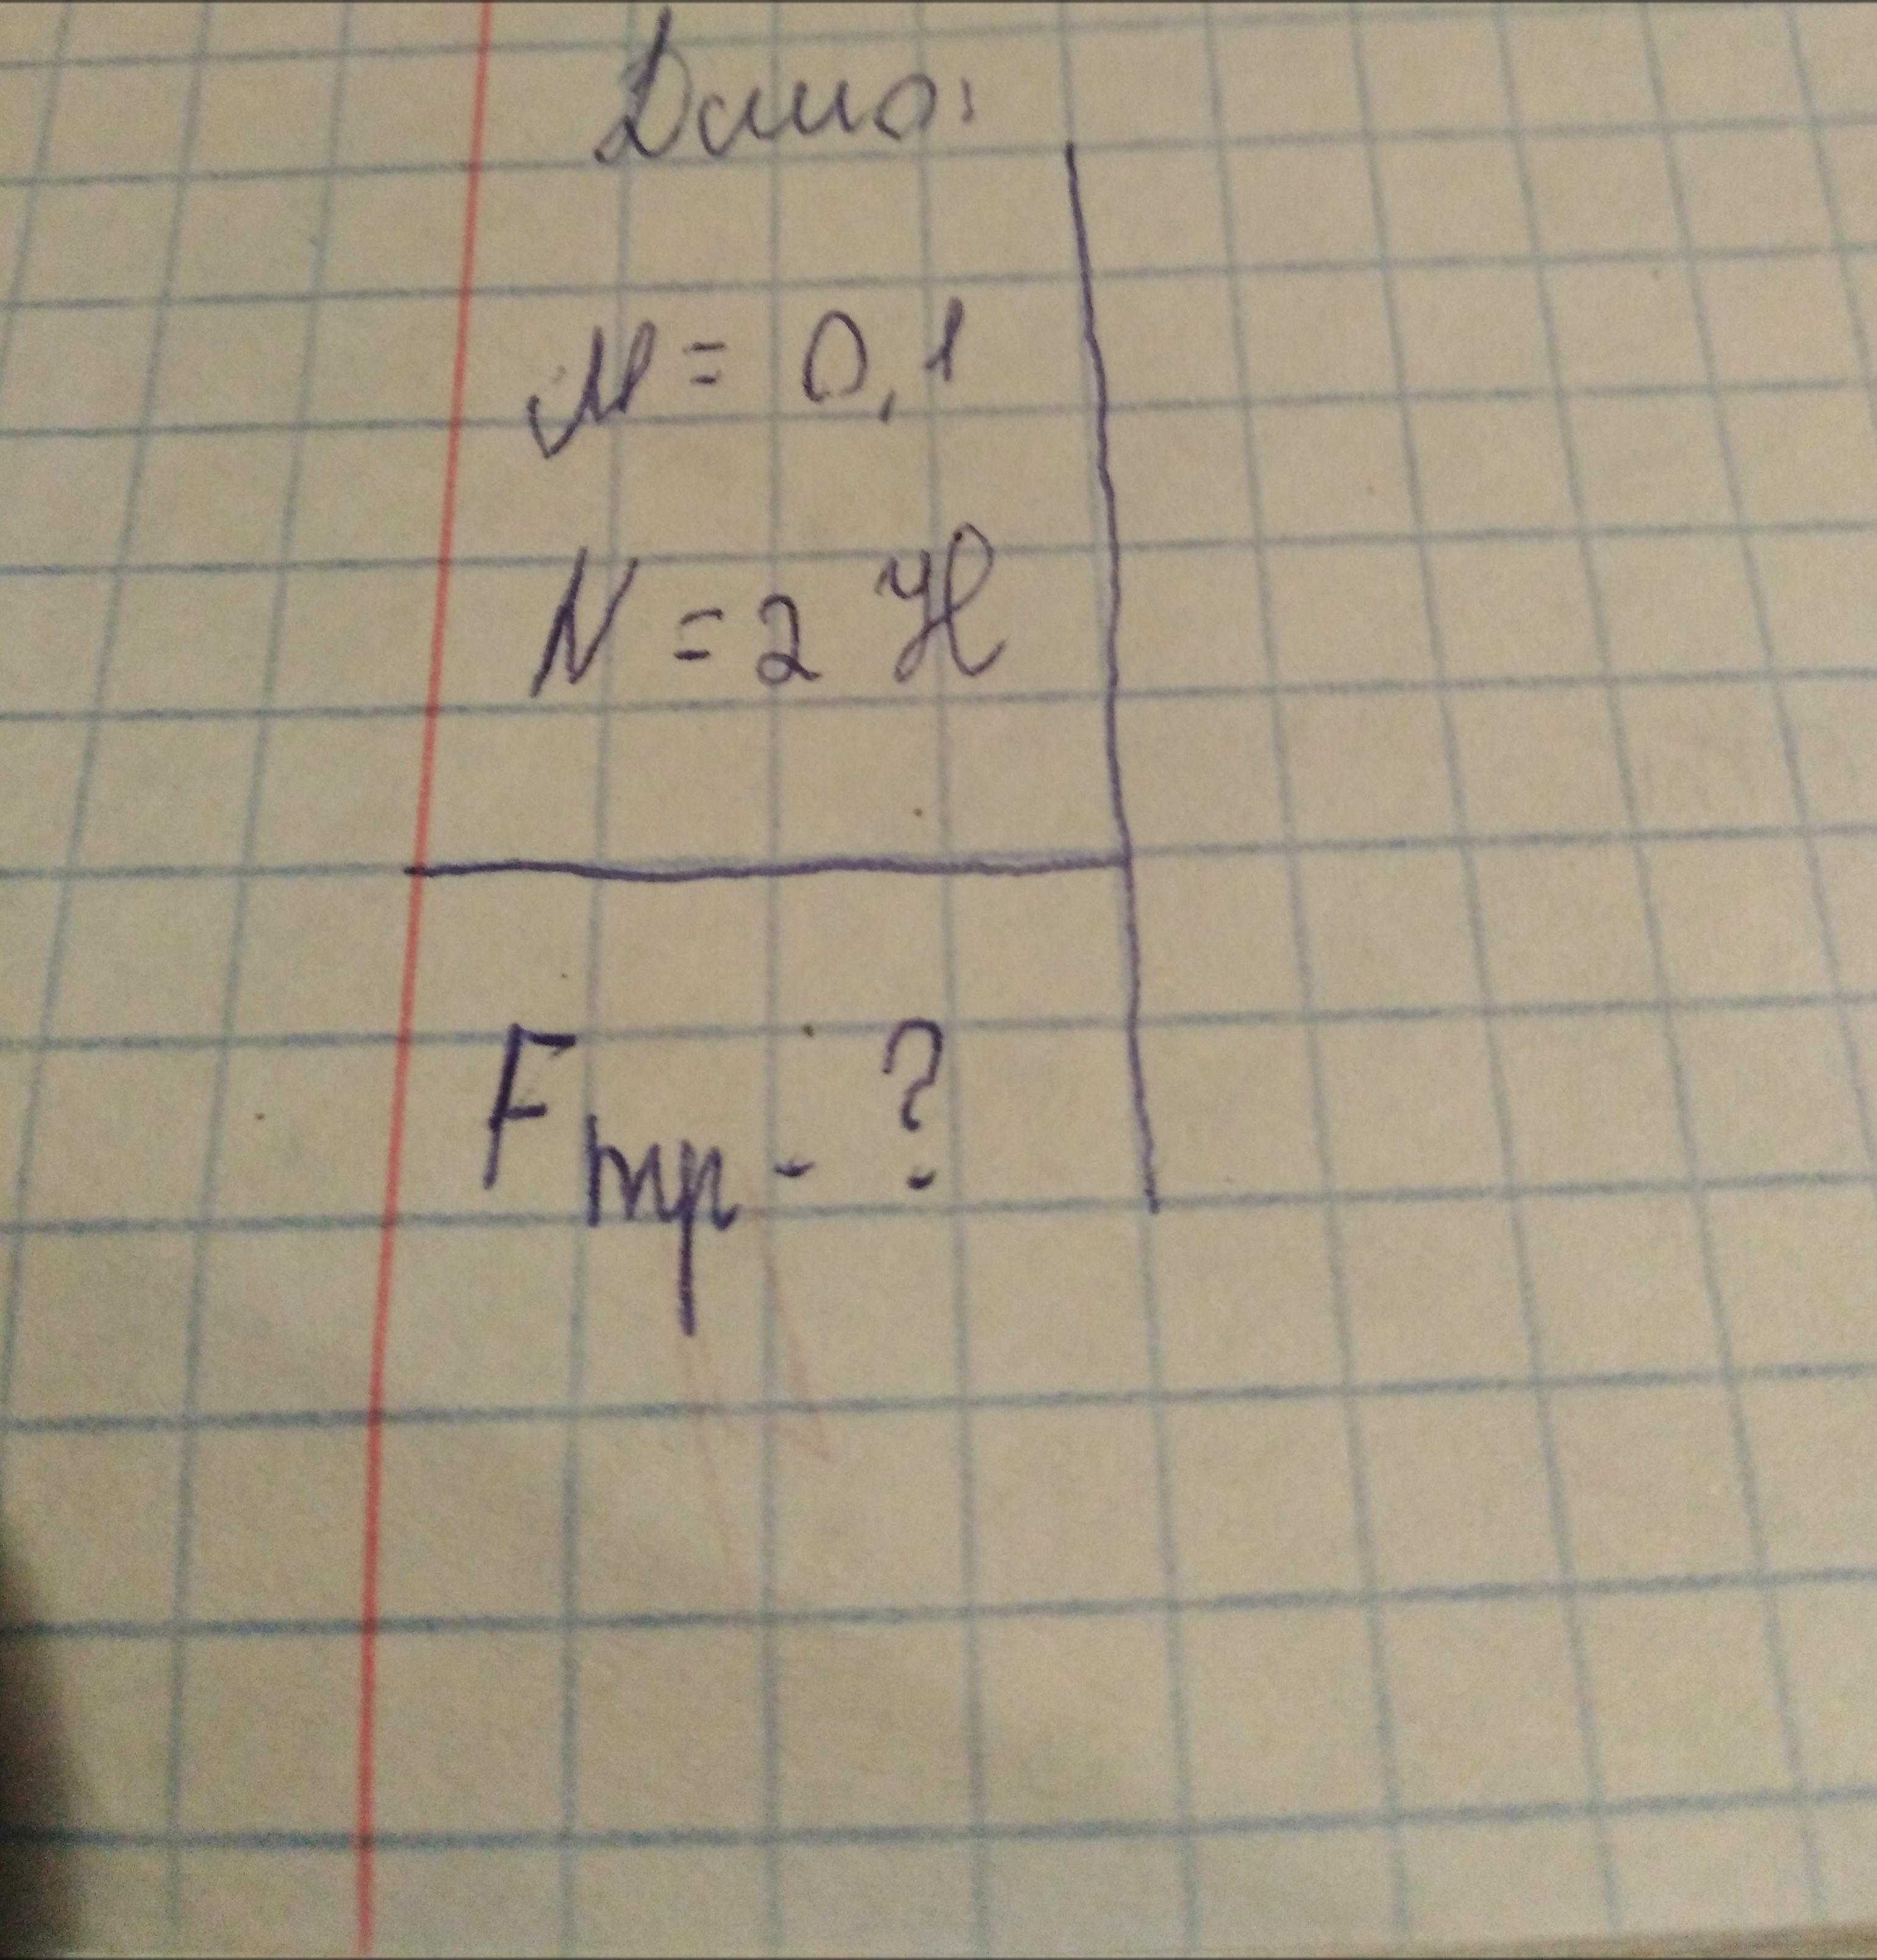 Дано:
μ = 0,1
N = 2 Н
Fтр - ?